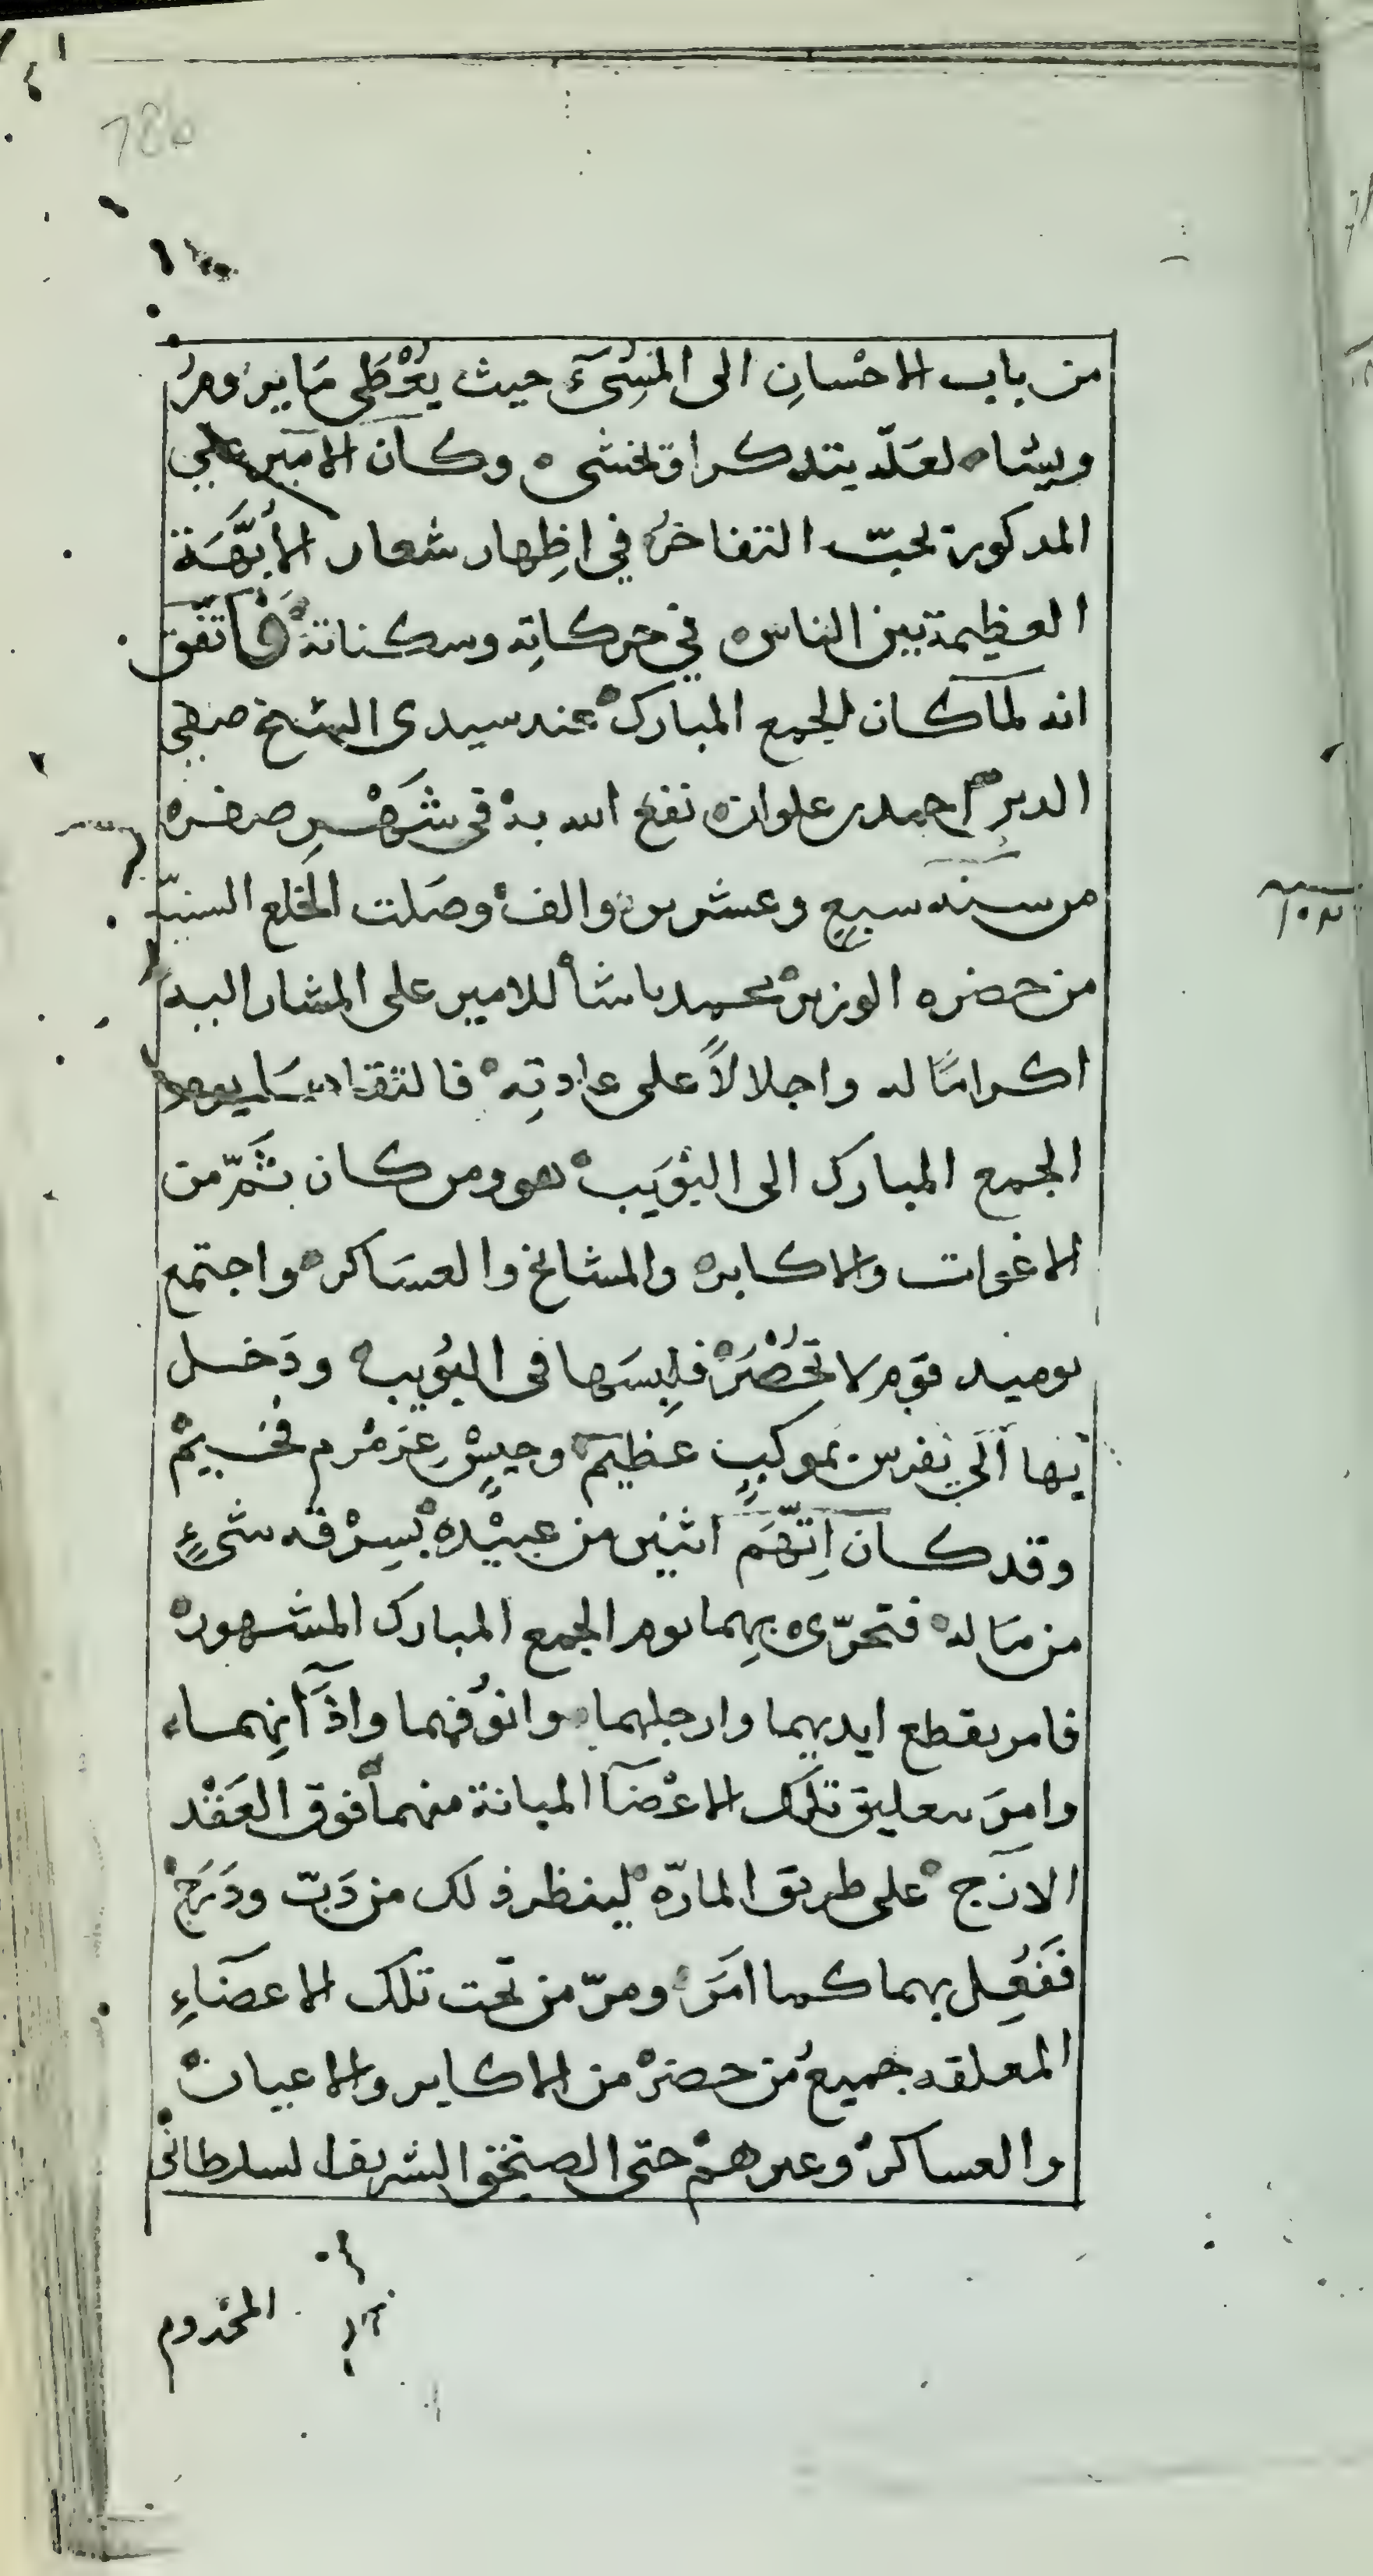 من باب الاحْسانِ الى المُسِىّءَ حيث يُعْطَى مَا يرومُ
ويشا لعَلّه يتدكر او يخشى وكان الامير علي
المدكور يحبّ التفاخرُ في اظِهار شعار الأبَّهَة
العظيمة بين الناس في حركاتِه وسكناتهْ فاتّفَق
انه لما كان الجمع المبارك عند سيدى الشيخ صفي
الدين احمد بن علوان نفع الله به في شَهْرِ صفر
من سنه سبعٍ وعشرين والف وصَلت الخلع السنيّه
من حضره الوزير محمد باشا للامير على المشار اليه
اكرامًا له واجلالاً على عادتِه فالتقاها يوم
الجمع المبارك الى البُوَيب هو ومن كان بثَمّ من
الاغوات والاكابر والمشايخ والعسَاكر واجتمع
يوميد قوم لا تُحْصَرْ فلبِسَها في البُويب ودَخل
بها الَى يَفرس بموكبٍ عظيم وجيشٍ عَرَمْرم فخيم
وقد كان اتّهَمَ اثنين من عبيْده بسِرْقه شىءٍ
من مَاله فتحرّى بهِما يوم الجمع المبارك المشهور
فامر بقطع ايديهما وارجلهما وانوُفهما واذَآنِهما
وامرَ بتعليق تلك الاعْضَآ المبانة منهما فوق العَقْد
الازَج على طريق المارّه لينظر ذلك من دَبّ ودَرَجْ
فَفَعُِل بهما كما امَرَ ومرّ من تحت تلك الاعضَاءِ
المعلقه جميعُ من حضرْ من الاكابر والاعيان
والعساكر وغيرهمْ حتى الصنجق الشريف السلطانى
المخدوم